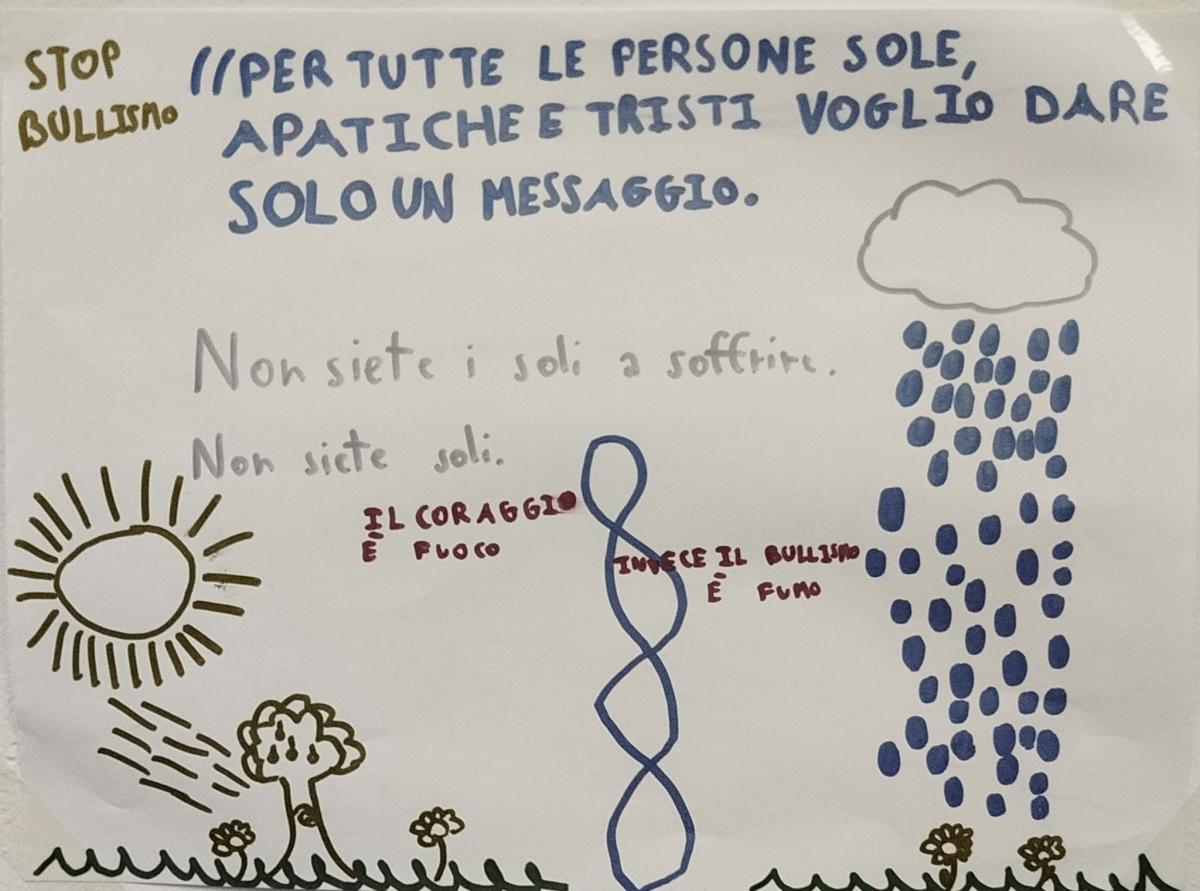 STOP
BULLISMO
//PER TUTTE LE PERSONE SOLE,
APATICHE E TRISTI VOGLIO DARE
SOLO UN MESSAGGIO.
Non siete i soli a soffrire.
Non siete soli.
IL CORAGGIO
È FUOCO
INVECE IL BULLISMO
È FUMO